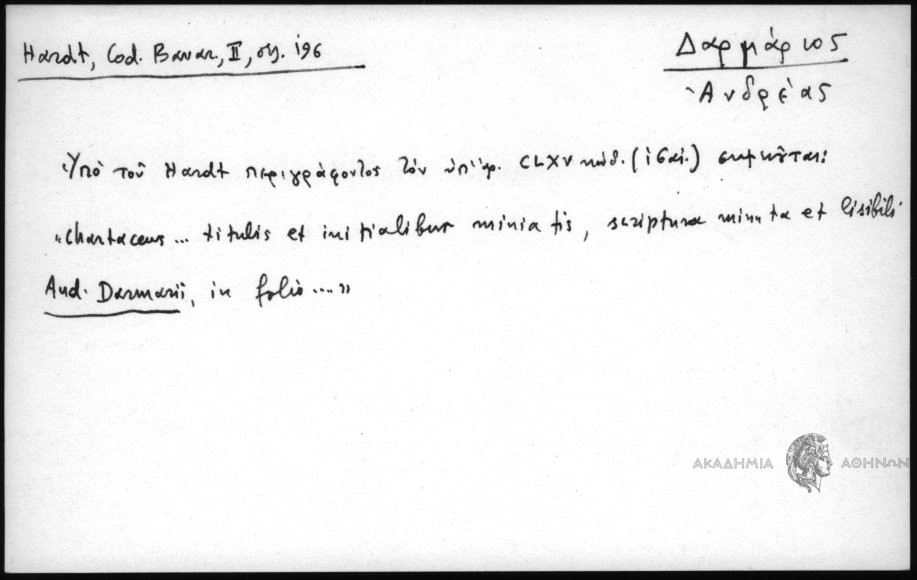 Hardt, Cod. Bavar, II, σελ. 196
Δαρμάριος
Ἀνδρέας
Ὑπὸ τοῦ Hardt περιγράφοντος τὸν ὑπ' ἀρ. CLXV κώδ. ( αἰ.) σημειοῦται:
"Chartaceus ... titulis et initialibus miniatis, scriptura minuta et lisibili
And. Darmarii, in folio ...."
ΑΚΑΔΗΜΙΑ ΑΘΗΝΩΝ